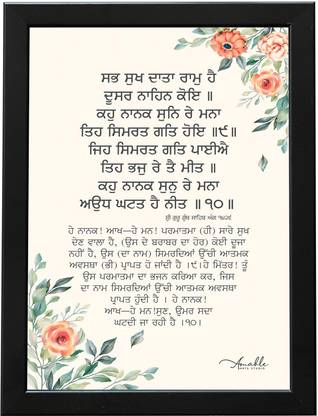 ਸਭ ਸੁਖ ਦਾਤਾ ਰਾਮੁ ਹੈ
ਦੂਸਰ ਨਾਹਿਨ ਕੋਇ ॥
ਕਹੁ ਨਾਨਕ ਸੁਨਿ ਰੇ ਮਨਾ
ਤਿਹ ਸਿਮਰਤ ਗਤਿ ਹੋਇ ॥੯॥
ਜਿਹ ਸਿਮਰਤ ਗਤਿ ਪਾਈਐ
ਤਿਹ ਭਜੁ ਰੇ ਤੈ ਮੀਤ ॥
ਕਹੁ ਨਾਨਕ ਸੁਨੁ ਰੇ ਮਨਾ
ਅਉਧ ਘਟਤ ਹੈ ਨੀਤ ॥੧੦॥
ਸ੍ਰੀ ਗੁਰੂ ਗ੍ਰੰਥ ਸਾਹਿਬ ਅੰਗ
ਹੇ ਨਾਨਕ! ਆਖ—ਹੇ ਮਨ! ਪਰਮਾਤਮਾ (ਹੀ) ਸਾਰੇ ਸੁਖ
ਦੇਣ ਵਾਲਾ ਹੈ, (ਉਸ ਦੇ ਬਰਾਬਰ ਦਾ ਹੋਰ) ਕੋਈ ਦੂਜਾ
ਨਹੀਂ ਹੈ, ਉਸ (ਦਾ ਨਾਮ) ਸਿਮਰਦਿਆਂ ਉੱਚੀ ਆਤਮਕ
ਅਵਸਥਾ (ਭੀ) ਪ੍ਰਾਪਤ ਹੋ ਜਾਂਦੀ ਹੈ ।੯।ਹੇ ਮਿੱਤਰ! ਤੂੰ
ਉਸ ਪਰਮਾਤਮਾ ਦਾ ਭਜਨ ਕਰਿਆ ਕਰ, ਜਿਸ
ਦਾ ਨਾਮ ਸਿਮਰਦਿਆਂ ਉੱਚੀ ਆਤਮਕ ਅਵਸਥਾ
ਪ੍ਰਾਪਤ ਹੁੰਦੀ ਹੈ । ਹੇ ਨਾਨਕ!
ਆਖ—ਹੇ ਮਨ!ਸੁਣ, ਉਮਰ ਸਦਾ
ਘਟਦੀ ਜਾ ਰਹੀ ਹੈ ।੧੦।
Amable
ARTS STUDIO